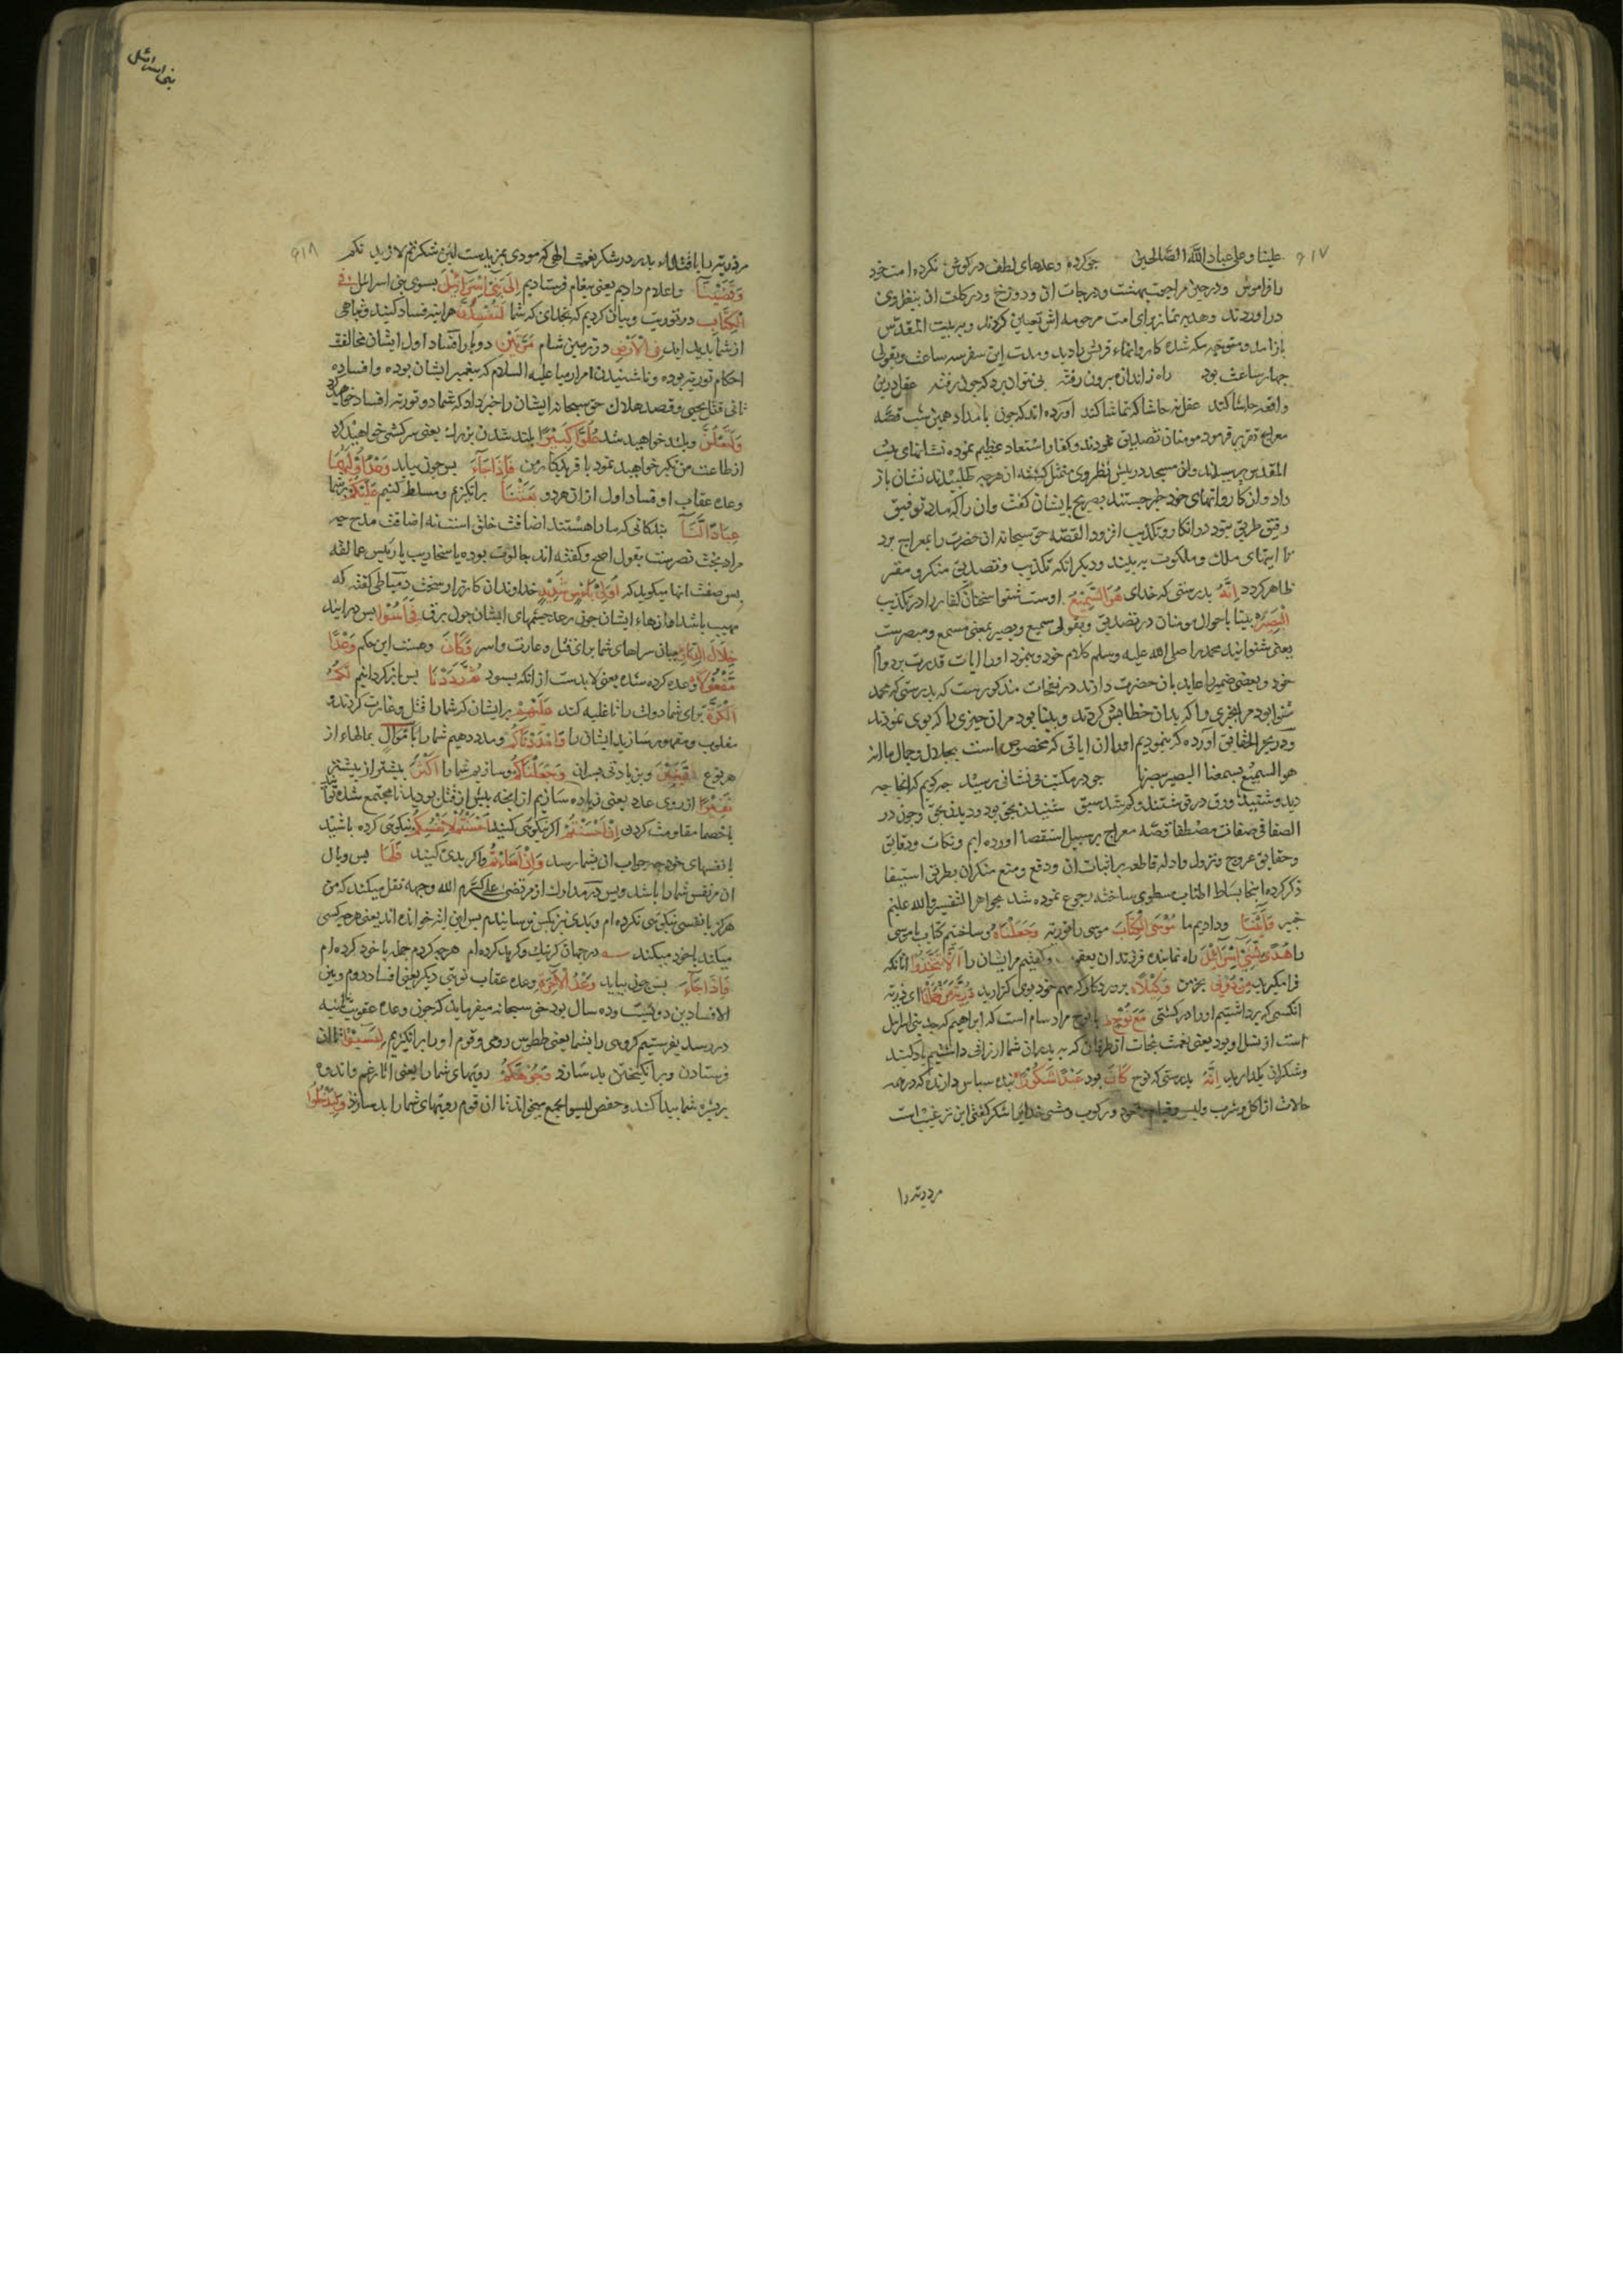 علینا و علی عباد الله الصالحین جو کرده وعدهای لطف در کوش نکرده امت خود
را فراموش و در حین مراجعت بهشت و درجات آن و دوزخ و درکات آن بنظر وی
در اوردند و هدیه نماز برای امت مرحومه اش تعیین کردند و به بیت المقدس
باز امد و متوجه مکه شده کاروانهاء قریش را دید و مدت این سفر سه ساعت و بقولی
جهار ساعت بود راه ز اندازه برون رفته نتوان برد که جون رفته عقل درین
واقعه حاشا کند عقل نه حاشا که تماشا کند آورده اند که جون بامداد همین شب قصّه
معراج تقریر فرمود مومنان تصدیق نمودند و کفار استبعاد عظیم نموده نشانهای بیت
المقدس پرسیدند وان مسجد در پیش نظر وی متمثل کشته از هرجه طلبیدند نشان باز
داد و از کاروانهای خود خبر جستند بصریح بایشان کفت و ان را که مدد توفیق
رفیق طریق نبود در انکار و تکذیب افزود القصّه حق سبحانه ان حضرت را بمعراج برد
تا ایتهای ملک و ملکوت به بیند و دیکر انکه تکذیب و تصدیق منکر و مقر
ظاهر کردد اِنَّهُ بدرستی که خدای هُوَ السَّمِیْعُ اوست شنوا سخنان کفار را در تکذیب
الْبَصِیْرُ بینا باحوال مومنان در تصدیق و بقولی سمیع و بصیر بمعنی مسمع و مبصرست
یعنی شنوانید محمد را صلی الله علیه وسلم کلام خود و بنمود او را ایات قدرت بر دوام
خود و بعضی ضمیر را عاید بان حضرت دارند در نفحات مذکورست که بدرستی که محمد
شنوا بود مر انجیزی را که بدان خطابش کردند و بینا بود مر ان جیزی را که بوی نمودند
و در بحر الحقایق آورده که بنمودیم او را ان ایاتی که مخصوص است بجلال و جمال ما انه
هو السمیع بسمعنا البصیر ببصرنا جو در مکتب بی نشانی رسید جه کویم که انجا جه
دید و شنید ورق در نوشتند و کم شد سبق شنیدن بحق بود و دیدن بحق و جون در
الصفا فی صفات مصطفا قصّه معراج بر سبیل استقصا اورده ایم و نکات و دقایق
و حقایق عروج و نزول و ادله قاطعه بر اثبات ان و دفع و منع منکران بطریق استیفا
ذکر کرده اینجا بساط اطناب مطوی ساخته رجوع نموده شد بجواهر التفسیر والله علیم
خبیر وَاٰتَیْنَا و دادیم ما مُوْسَی الْکِتَابَ موسی را توریة وَجَعَلْنَاهُ و ساختیم کتاب یا موسی
را هُدًی لِّبَنِیْ اِسْرَائِیْلَ راه نماینده فرزندان یعقوب و کفتیم مرایشان را اَلَّا تَتَّخِذُوْا انانکه
فرا مکیرید مِنْ دُوْنِی بجز من وَکِیْلًا پروردکار که مهم خود بوی کذارید ذُرِّیَّةَ مَنْ حَمَلْنَا ای ذریة
انکسی که برداشتیم او را در کشتی مَعَ نُوْحٍ با نوح مراد سام است که ابراهیم که جد بنی اسرایل
است از نسل او بود یعنی نعمت نجات از طوفان که به پدران شما ارزانی داشتیم یاد کنید
و شکر ان بکذارید اِنَّهُ بدرستی که نوح کَانَ بود عَبْدًا شَکُوْرًا بنده سپاس دارنده که در همه
حالات از اکل و شرب و لبس و قیام و قعود و رکوب و مشی خدایرا شکر کفتی این ترغیب است
مر ذریة را
۹۱۷
بنی اسرائیل
۹۱۸
مر ذریة را باقتداء پدر در شکر نعمت الهی که مودی بمزیدست لئن شکرتم لازیدنکم
وَقَضَیْنَا و اعلام دادیم یعنی پیغام فرستادیم اِلٰی بَنِیْ اِسْرَائِیْلَ بسوی بنی اسرائل فی
الْکِتَابِ در توریت و بیان کردیم که بخدای که شما لَتُفْسِدُنَّ هراینه فساد کنید و تباهی
از شما پدید اید فِی الْاَرْضِ در زمین شام مَرَّتَیْنِ دو بار افساد اول ایشان مخالفت
احکام توریة بوده و ناشنیدن امر ارمیا علیه السلام که پیغمبر ایشان بوده و افساد
ثانی قتل یحیی و قصد هلاک حق سبحانه ایشان را خبر داد که شما دو نوبة افساد خواهید کرد
وَلَتَعْلُنَّ و بلند خواهید شد عُلُوًّا کَبِیْرًا بلند شدن بزرک یعنی سرکشی خواهید کرد
از طاعت من تکبر خواهید نمود با فریدکار من فَاِذَا جَاءَ بس جون بیاید وَعْدُ اُوْلٰیهُمَا
وعده عقاب او فساد اول از ان هر دو بَعَثْنَا برانکیزیم و مسلط کنیم عَلَیْکُمْ بر شما
عِبَادًا لَّنَا بندکانی که ما را هستند اضافت خلق است نه اضافت مدح جه
مراد بخت نصرست بقول اصح و کفته اند جالوت بوده یا سنحاریب یا رئیس عمالقه
بس صفت انها میکوید که اُولِیْ بَاْسٍ شَدِیْدٍ خداوندان کارزار سخت دمیاطی کفته که
مهیب باشد اوازهاء ایشان جون رعد جشمهای ایشان جون برق فَجَاسُوْا بس درایند
خِلَالَ الدِّیَارِ میان سراهای شما برای قتل و غارت و اسر وَکَانَ و هست این حکم وَعْدًا
مَفْعُوْلًا وعده کرده شده یعنی لابدست از انکه بود ثُمَّ رَدَدْنَا بس باز کردانیم لَکُمُ
الْکَرَّةَ برای شما دولت را تا غلبه کنید عَلَیْهِمْ بر ایشان که شما را قتل و غارت کردند و
مغلوب و مقهور سازید ایشان را وَاَمْدَدْنَاکُمْ و مدد دهیم شما را بِاَمْوَالٍ بمالهاء از
هر نوع وَبَنِیْنَ و بزیادتی پسران وَجَعَلْنَاکُمْ و سازیم شما را اَکْثَرَ بیشتر از بیشتر
نَفِیْرًا از روی عدد یعنی زیاده سازیم از انجه پیش از قتل بودید تا مجتمع شده توانید
با خصما مقاومت کردن اِنْ اَحْسَنْتُمْ اکر نیکویی کنید اَحْسَنْتُمْ لِاَنْفُسِکُمْ نیکویی کرده باشید
با نفسهای خود جه جواب ان بشما رسد وَاِنْ اَسَأْتُمْ و اکر بدی کنید فَلَهَا بس وبال
ان مر نفس شما را باشد و بس در مدارک از مرتضی علی کرّم الله وجهه نقل میکند که من
هرکز با نفسی نیکویی نکرده ام و بدی نیز بکس نرسانیدم بس این ایة خوانده اند یعنی هرجه کسی
میکند با خود میکند در جهان کر نیک و کر بد کرده ام هرجه کردم جمله با خود کرده ام
فَاِذَا جَاءَ بس جون بیاید وَعْدُ الْاٰخِرَةِ وعده عقاب نوبتی دیکر یعنی افساد دوم و بین
الافسادین دویست و ده سال بود حق سبحانه میفرماید که جون وعده عقوبت ثانیه
در رسد بفرستیم کروهی را بشما یعنی ططوس رومی و قوم او را برانکیزیم لِیَسُوْءُا تا ان
فرستادن و برانکیختن بد سازد وُجُوْهَکُمْ رویهای شما را یعنی اثار غم و اندوه
بر بشره شما پیدا کند و حفص لیسوا بجمع میخواند تا ان قوم رویهای شما را بد سازند وَلِیَدْخُلُوا